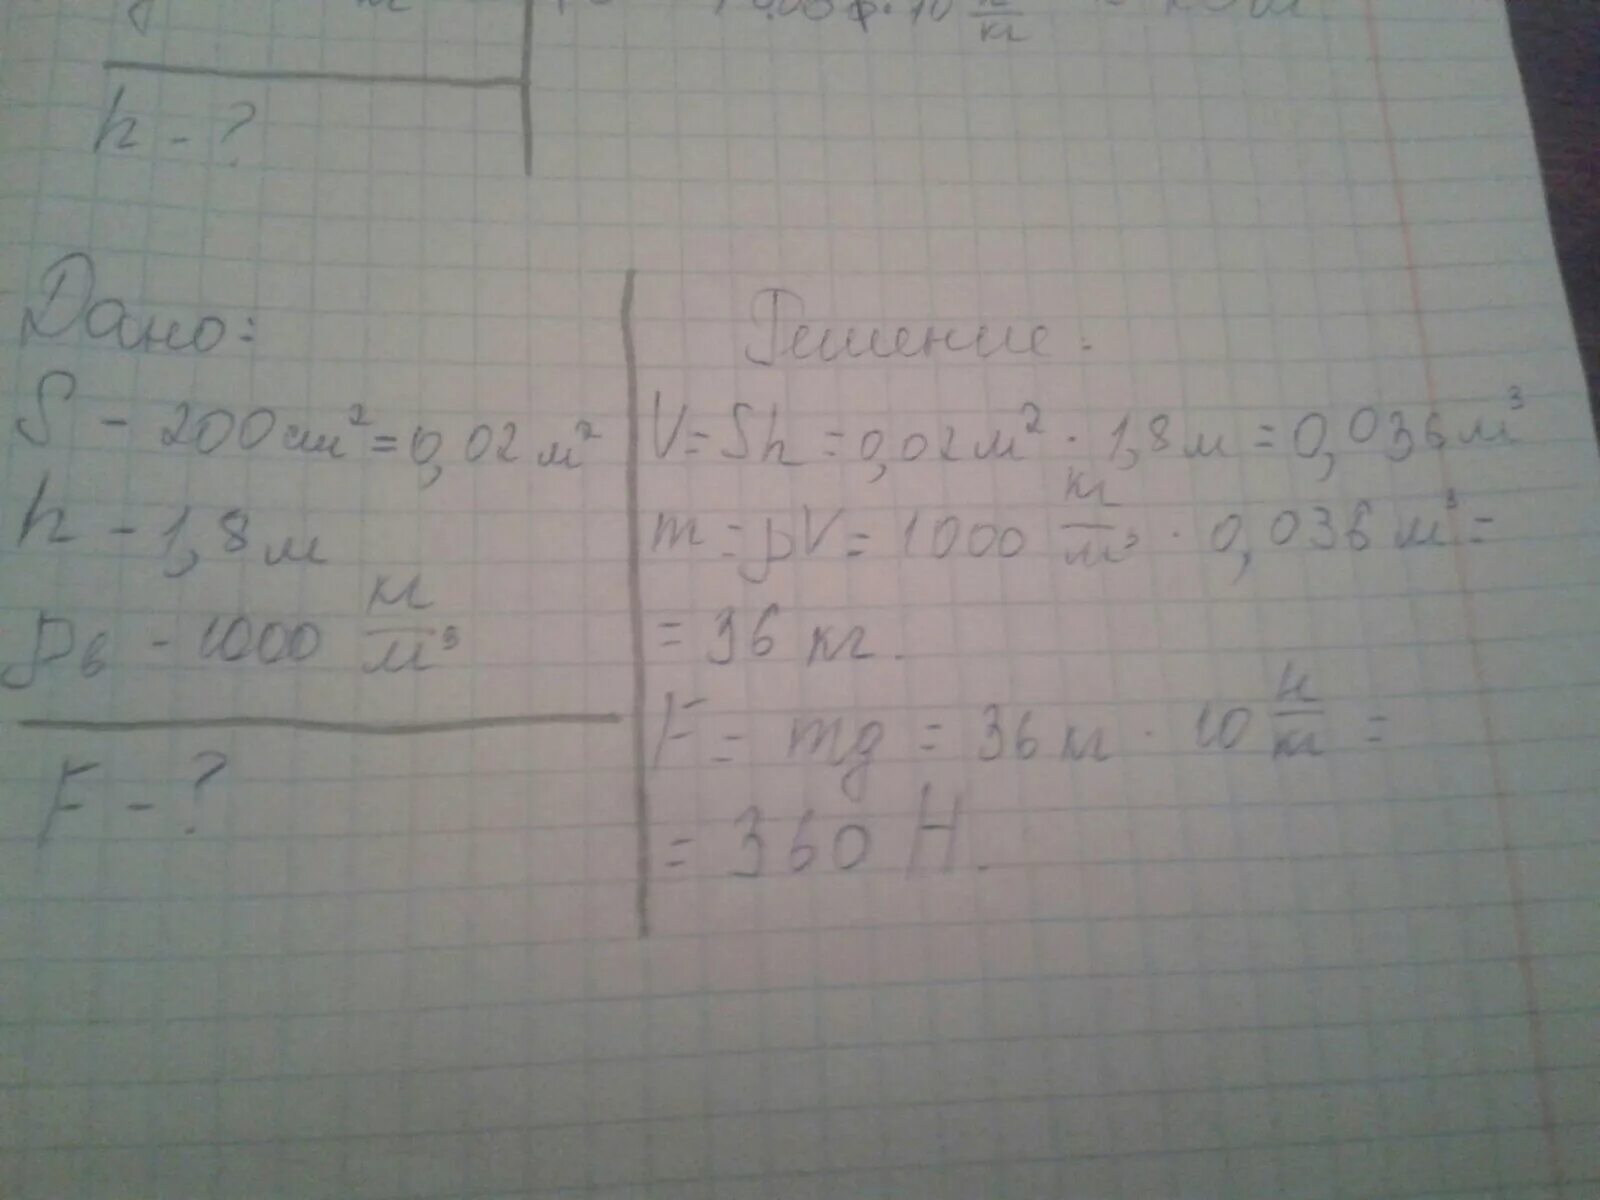 кг
h - ?
Дано:
S - 200 см² = 0,02 м²
h - 1,8 м
ρв - 1000 кг/м³
F - ?
Решение:
V = Sh = 0,02 м² · 1,8 м = 0,036 м³
m = ρV = 1000 кг/м³ · 0,036 м³ =
= 36 кг.
F = mg = 36 кг · 10 Н/кг =
= 360 Н.